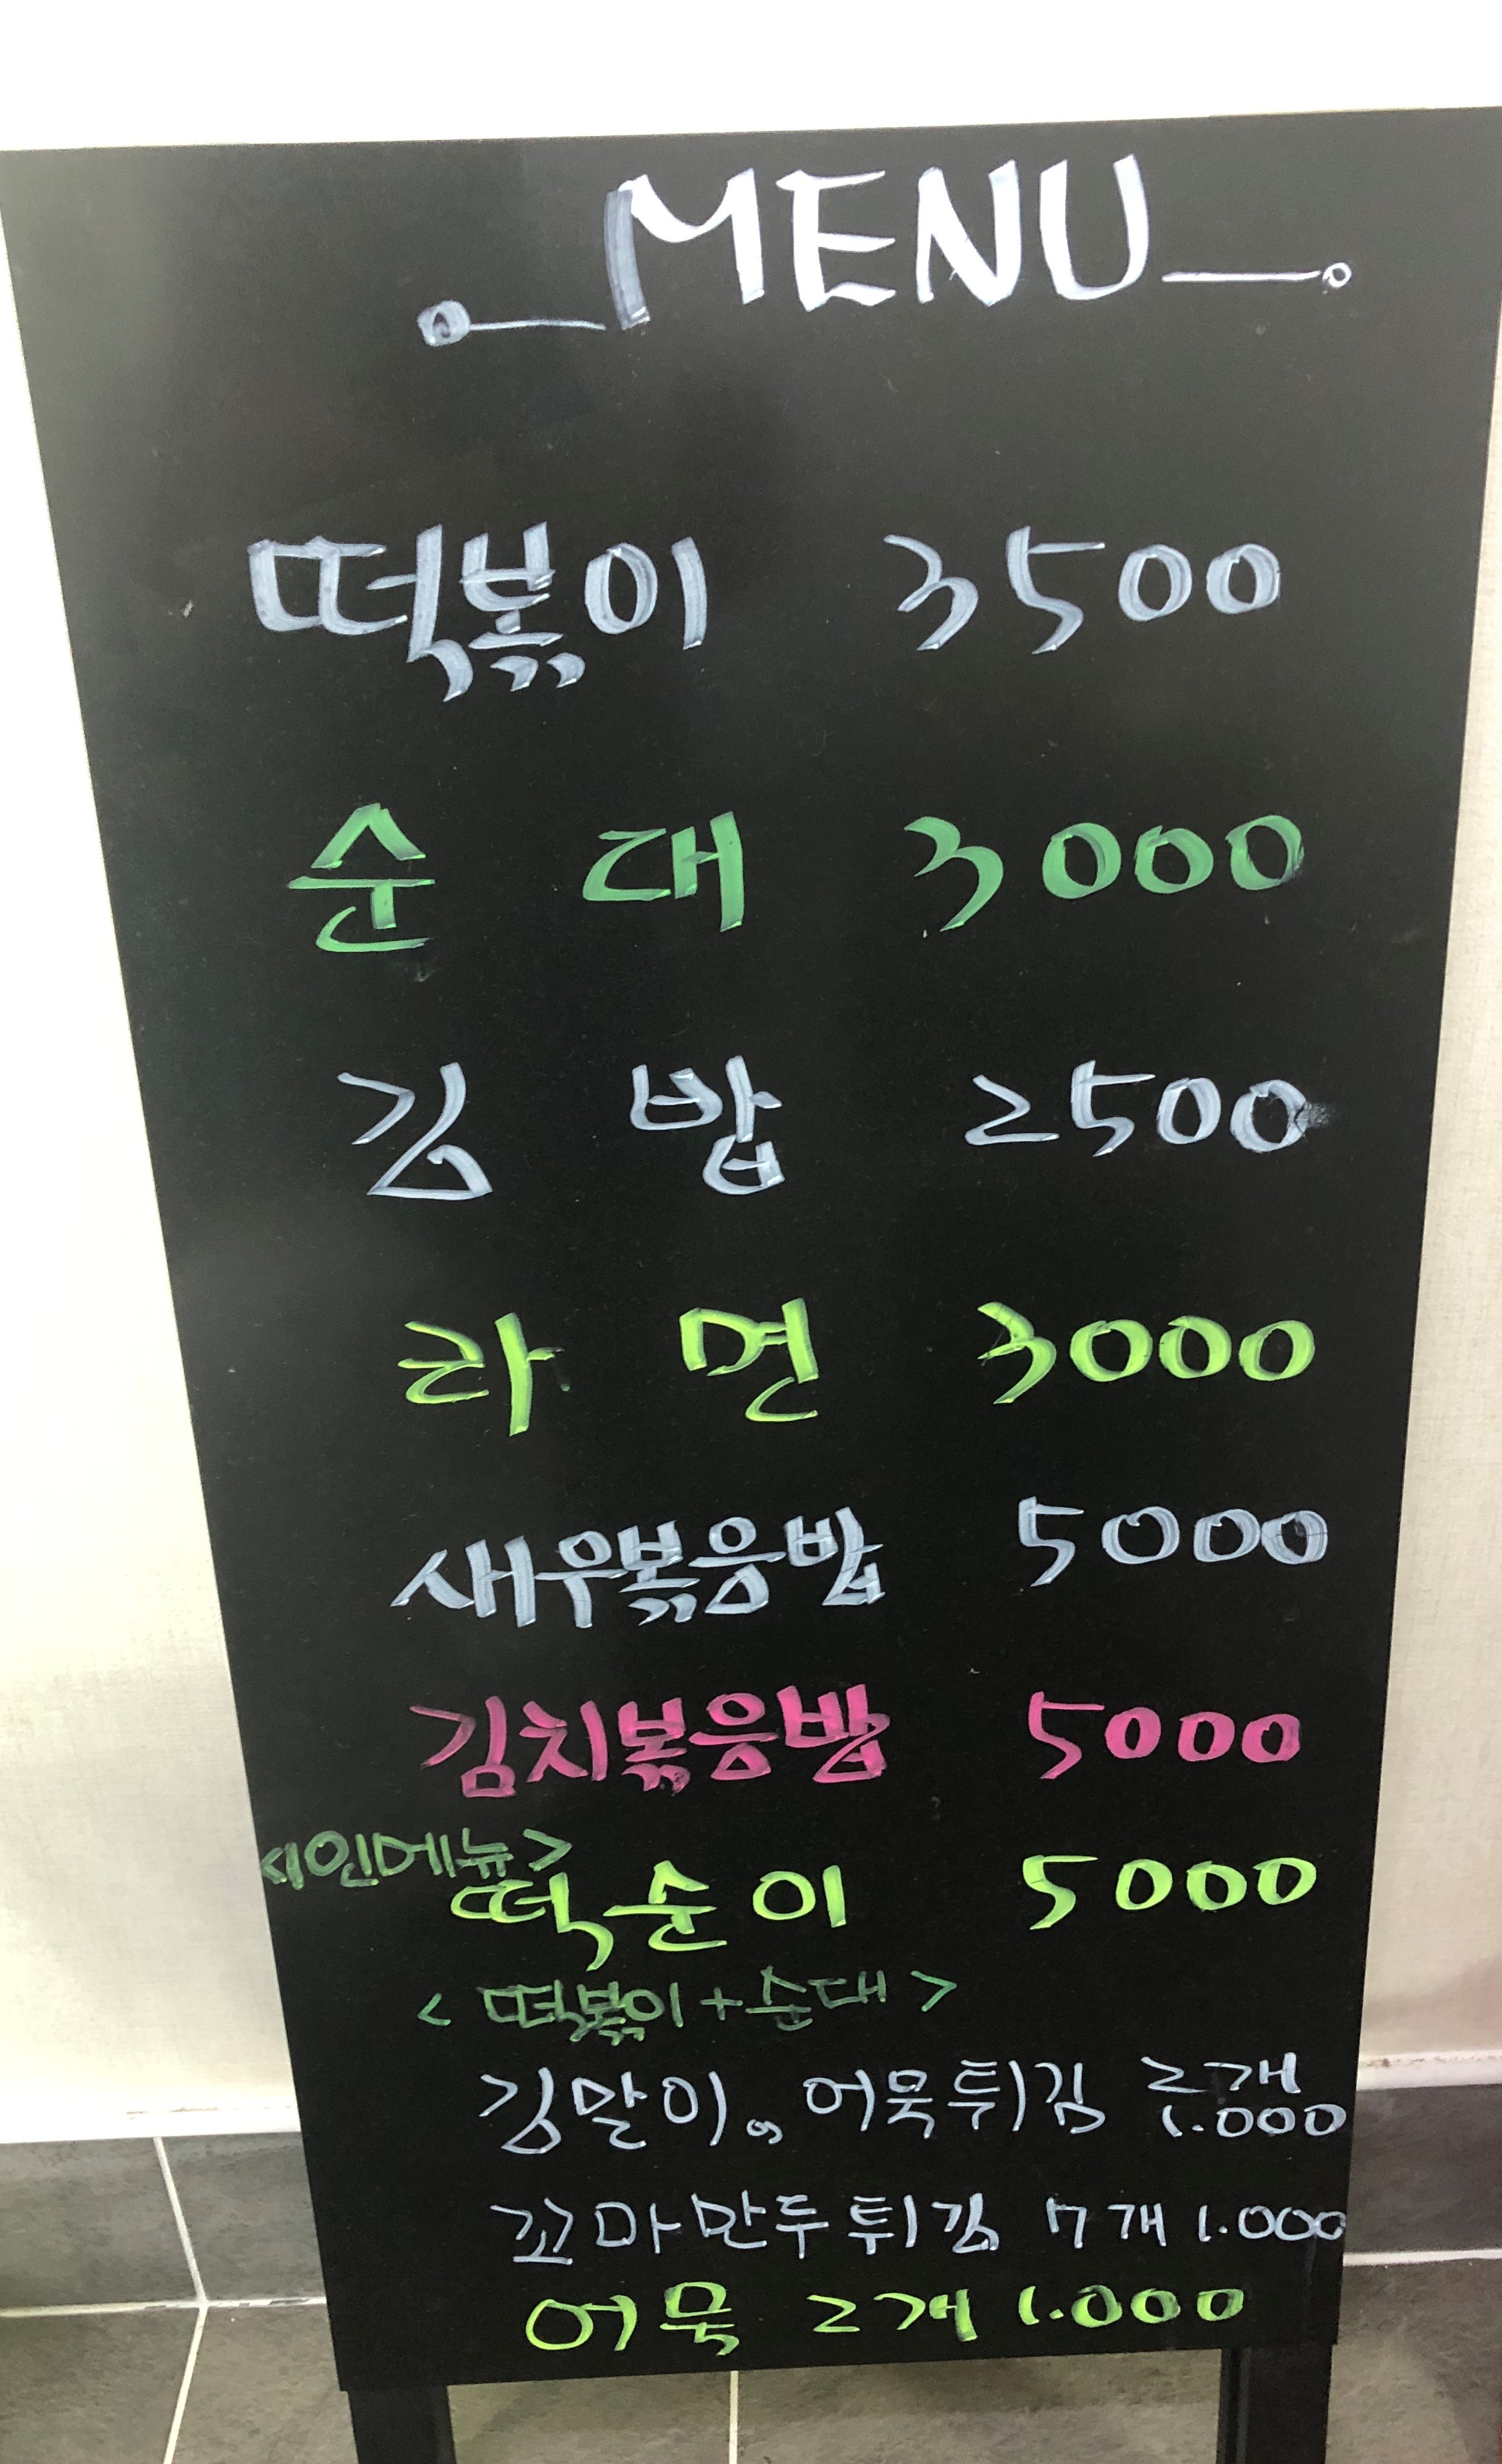 MENU
떡볶이 3500
순대 3000
김밥 2500
라면 3000
새우볶음밥 5000
김치볶음밥 5000
<1인메뉴>
떡순이 5000
<떡볶이+순대>
김말이。어묵튀김 2개
1.000
꼬마만두튀김 7개 1.000
어묵 2개 1.000